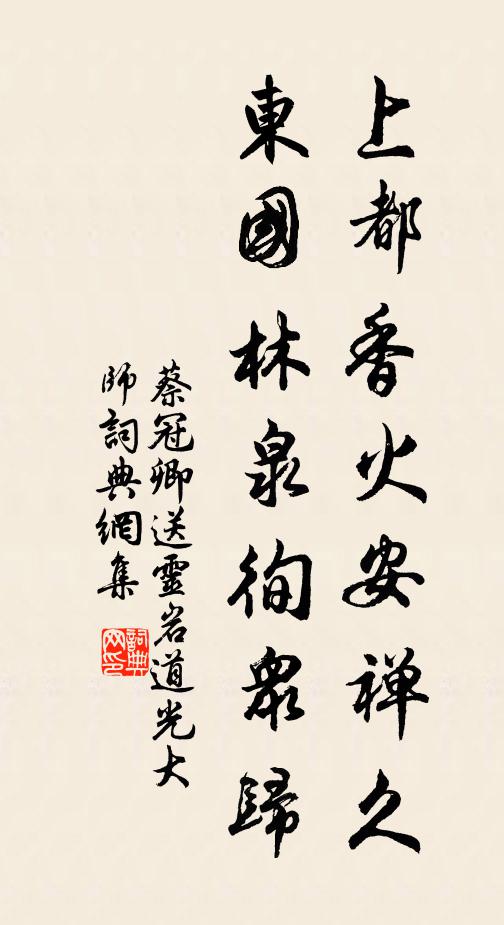 上都香火安禅久
東國林泉徇衆歸
蔡冠卿送靈岩道光大
師詞典網集
詞典
网印